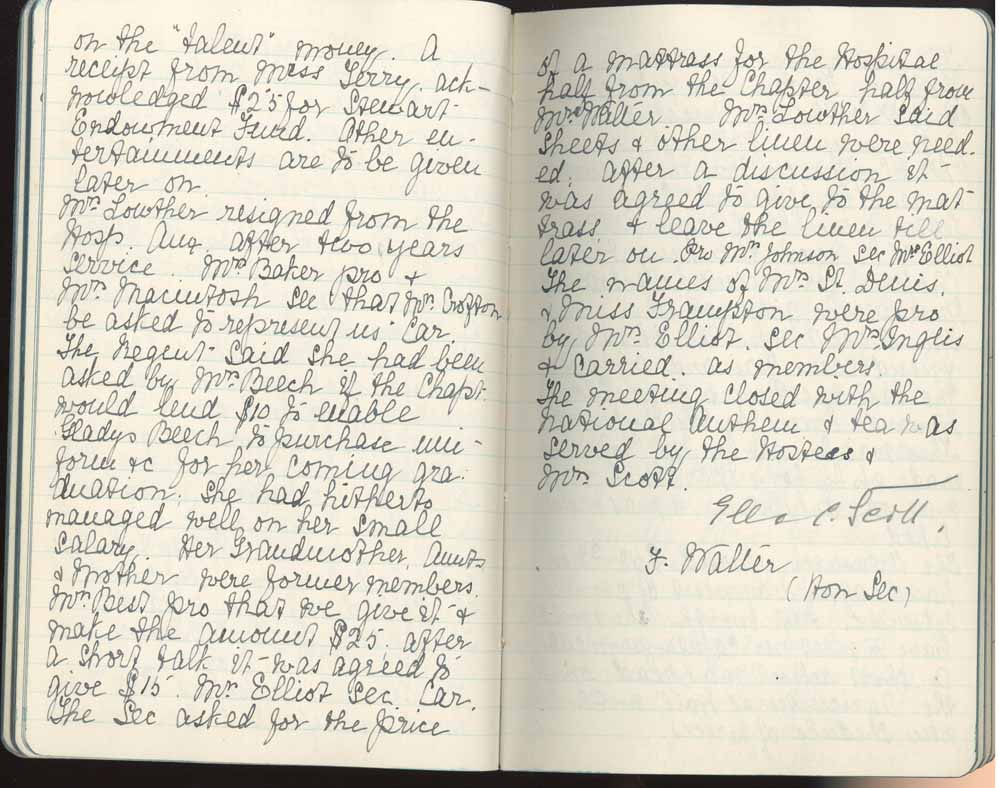 on the "talent" money. A
receipt from Miss Terry, ack-
nowledged $25 for Stewart
Endowment Fund. Other en-
tertainments are to be given
later on.
Mrs Lowther resigned from the
Hosp. Aux. after two years
service. Mrs Baker pro &
Mrs Macintosh sec that Mrs Crofton
be asked to represent us Car.
The Regent said she had been
asked by Mrs Beech if the Chapt.
would lend $10 to enable
Gladys Beech to purchase uni-
form &c for her coming gra-
duation. She had hitherto
managed well on her small
salary. Her Grandmother, Aunts
& Mother were former members.
Mrs Best pro that we give it &
make the amount $25. after
a short talk it was agreed to
give $15. Mrs Elliot Sec. Car.
The Sec asked for the price
of a mattrass for the Hospital
half from the Chapter half from
Mrs Walter Mrs Lowther said
sheets & other linen were need-
ed. After a discussion it
was agreed to give to the mat-
trass & leave the linen till
later on. Pro Mrs Johnson Sec Mrs Elliot
The names of Mrs St. Denis.
& Miss Frampton were pro
by Mrs Elliot. Sec Mrs Inglis
& Carried. as members
The meeting closed with the
National Anthem & tea was
served by the Hostess &
Mrs Scott.
Ella C. Scott.
F. Walter
(Hon Sec)